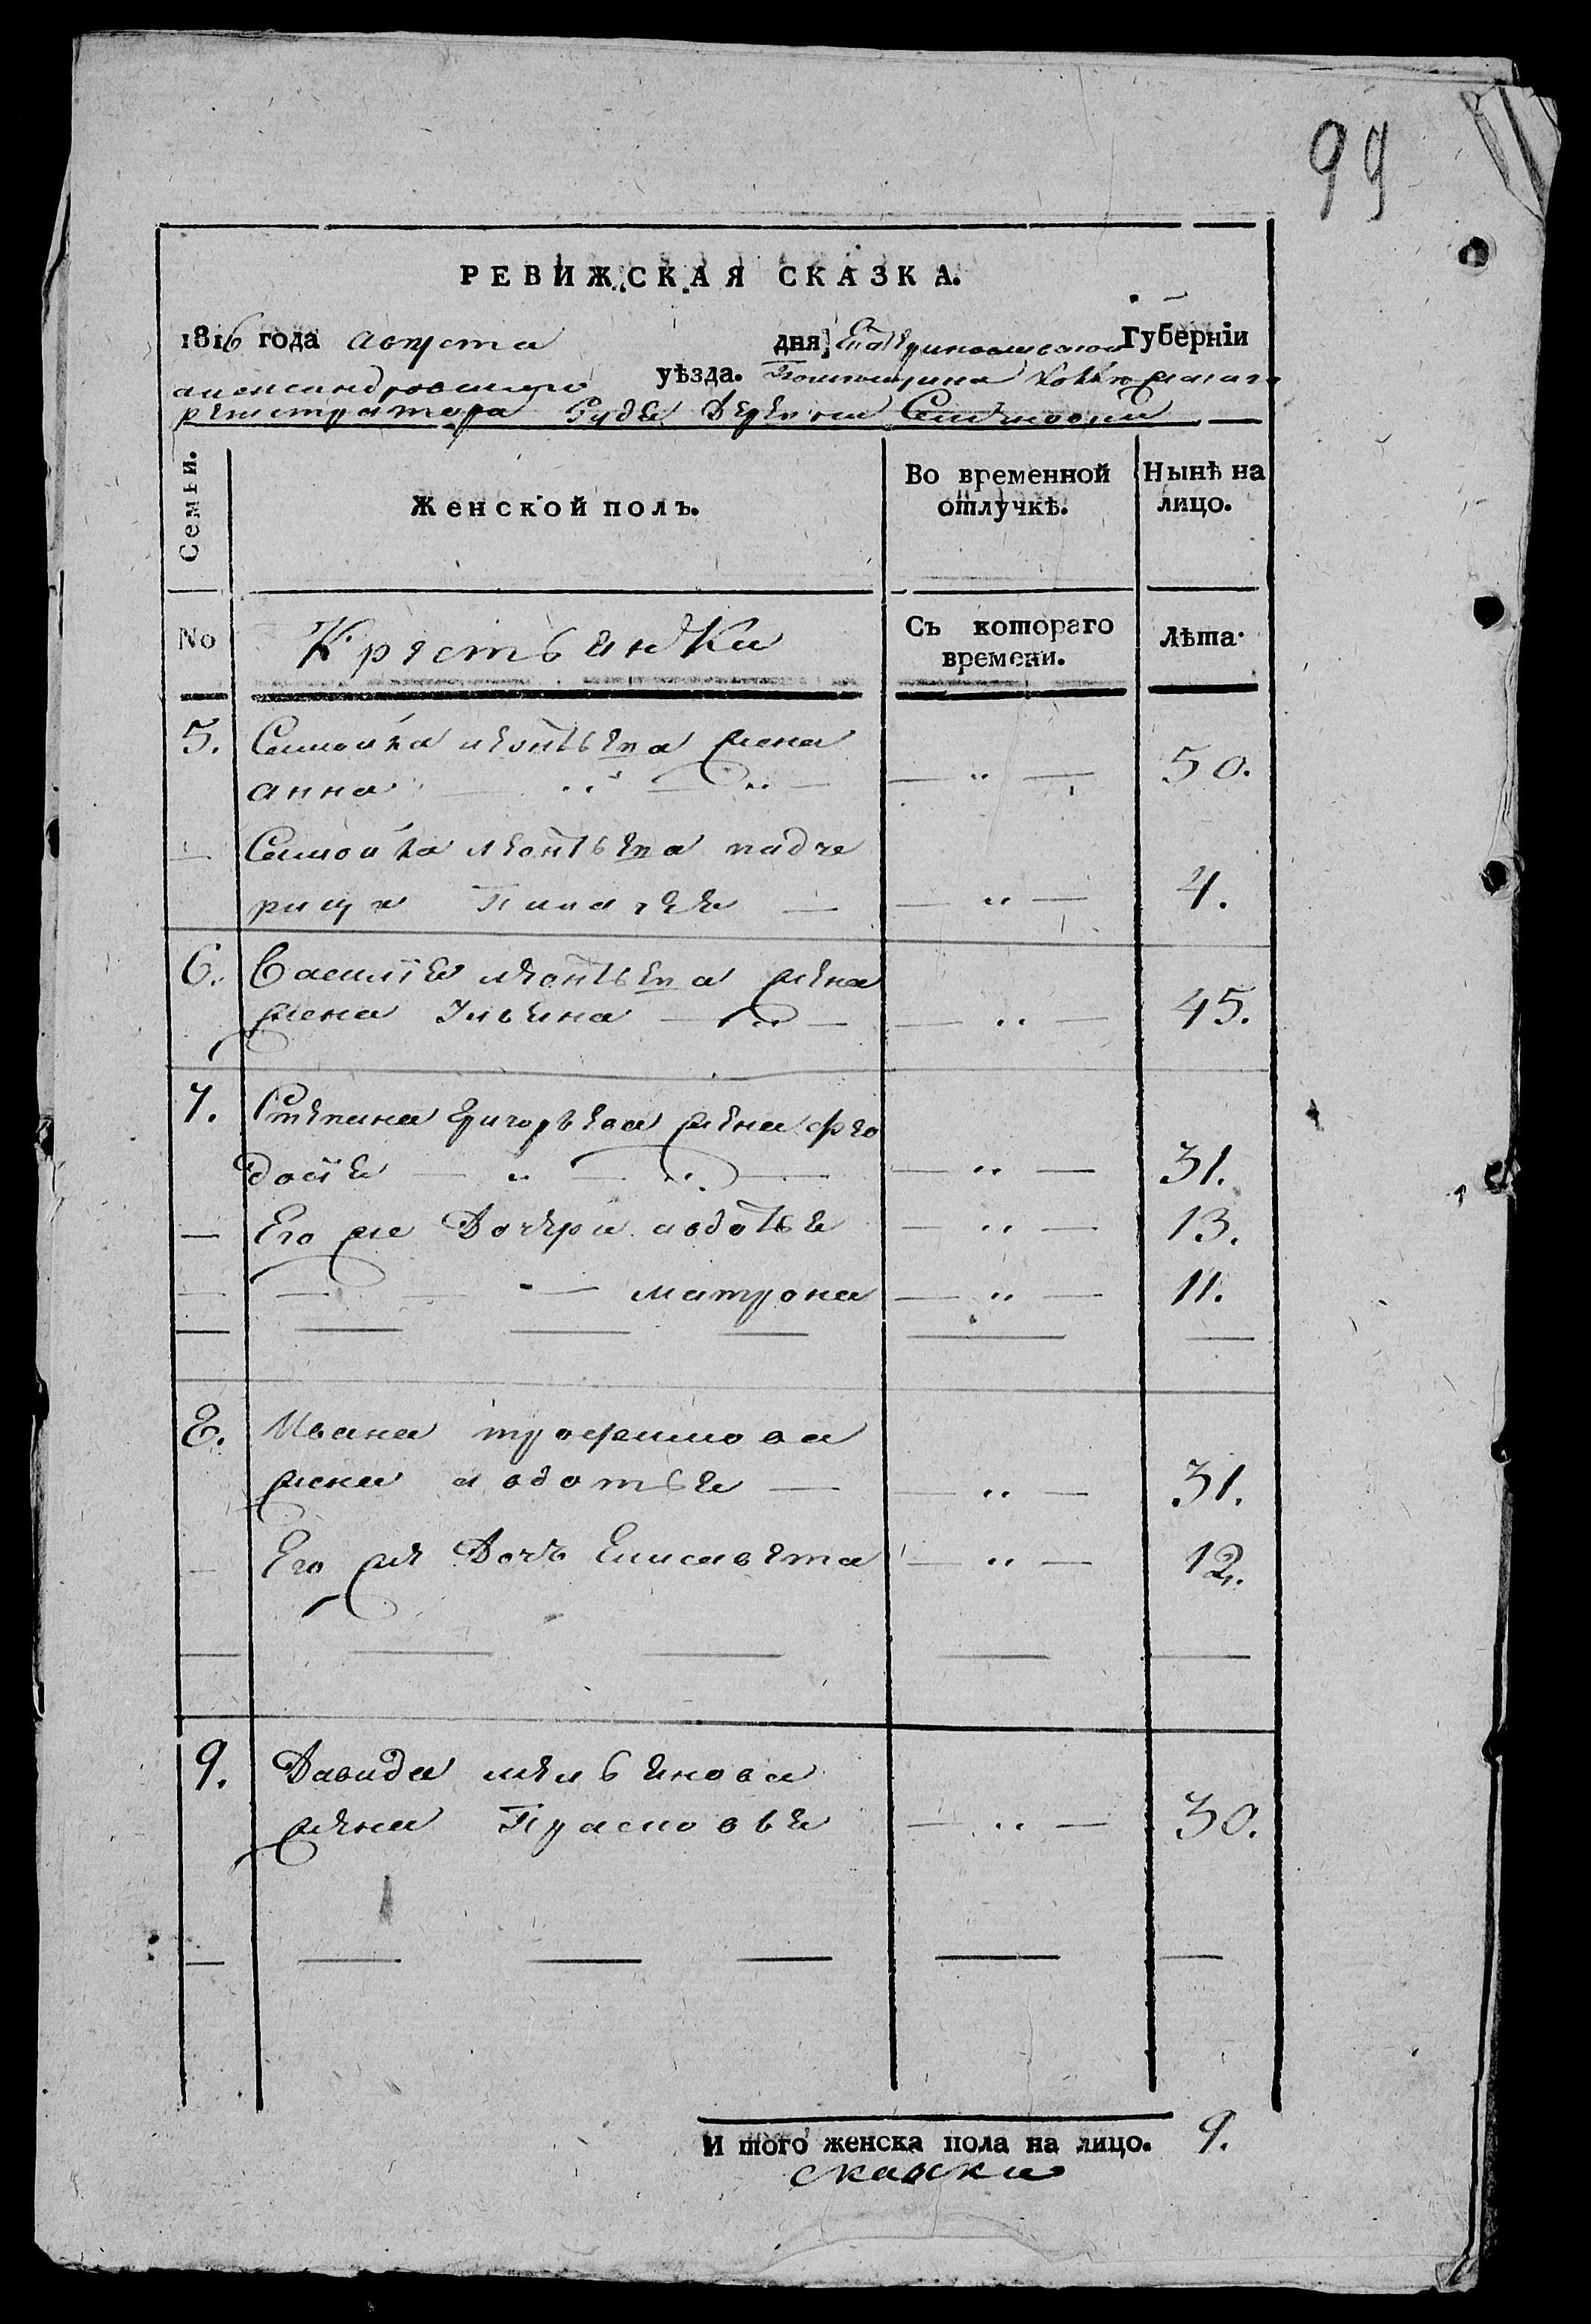 99
РЕВИЖСКАЯ СКАЗКА.
1816 года августа дня Екатеринославской Губерніи
александровскаго уѣзда. Помещика коллежскаго
регистратора Рудя Деревни
Семьи. Женской полъ. Во временной отлучкѣ. Нынѣ на лицо.
No Крестьянки Съ котораго времени. Лѣта.
5. Самойла леонтьева жена
анна — „ — 50.
— Самойла леонтьева падче
рица Пелагея — — „ — 4.
6. Василія леонтьева жена
жена Ульяна — — „ — 45.
7. Степана григорьева жена фео
досія — „ — 31.
— Его же Дочери авдотья — „ — 13.
— матрона — „ — 11.
8. Ивана трофимова
жена авдотья — — „ — 31.
— Его же Дочь Елисавета — „ — 12.
9. Давида емельянова
жена Прасковья — „ — 30.
И того женска пола на лицо. 9.